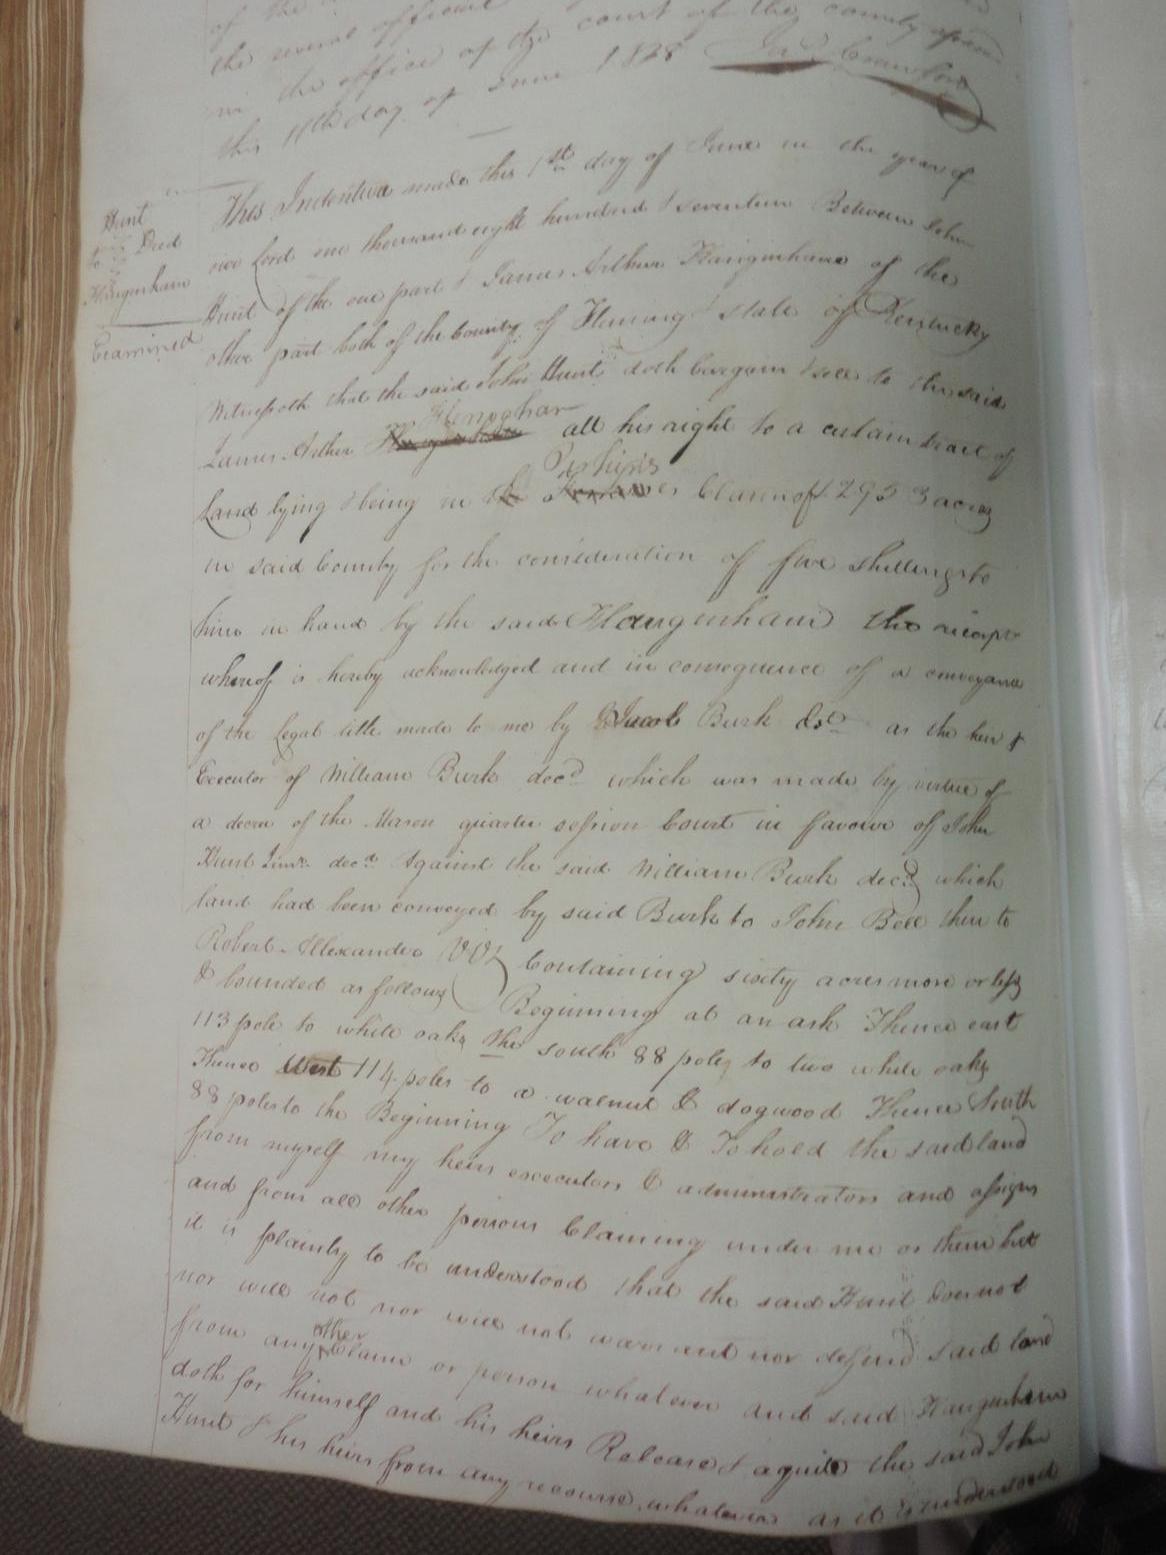 of the
the several
in the office of the court of the county
this 11th day of June 1828 Jas Crawford
Hunt
to Deed
Flaugenham
Examined
This Indenture made this 1st day of June in the year of
our Lord one thousand eight hundred & seventeen Between John
Hunt of the one part & James Arthur Flaugenham of the
other part both of the County of Fleming & state of Kentucky
Witnesseth that the said John Hunt doth bargain & sell to the said
James Arthur all his right to a certain tract of
Land lying & being in Perkins Claim of 12953 acres
in said County for the consideration of five shillings to
him in hand by the said Flaugenham the receipt
whereof is hereby acknowledged and in consequence of a conveyance
of the Legal title made to me by Jacob Burk as the heir &
Executor of William Burk decd which was made by virtue of
a decree of the Mason quarter session Court in favour of John
Hunt Junr. decd Against the said William Burk decd which
land had been conveyed by said Burk to John Bell then to
Robert Allexander Containing sixty acres more or less
& bounded as follows Beginning at an ash Thence east
113 pole to white oaks the south 88 poles to two white oaks
Thence West 114 poles to a walnut & dogwood Thence North
88 poles to the Beginning To have & To hold the said land
from myself my heirs executors & administrators and assigns
and from all other persons Claiming under me or them but
it is plainly to be understood that the said Hunt does not
nor will not nor will not warrant nor defend said land
from any other Claim or person whatever and said Flaugenham
doth for himself and his heirs Release & aquite the said John
Hunt & his heirs from any recourse whatever as it is understood